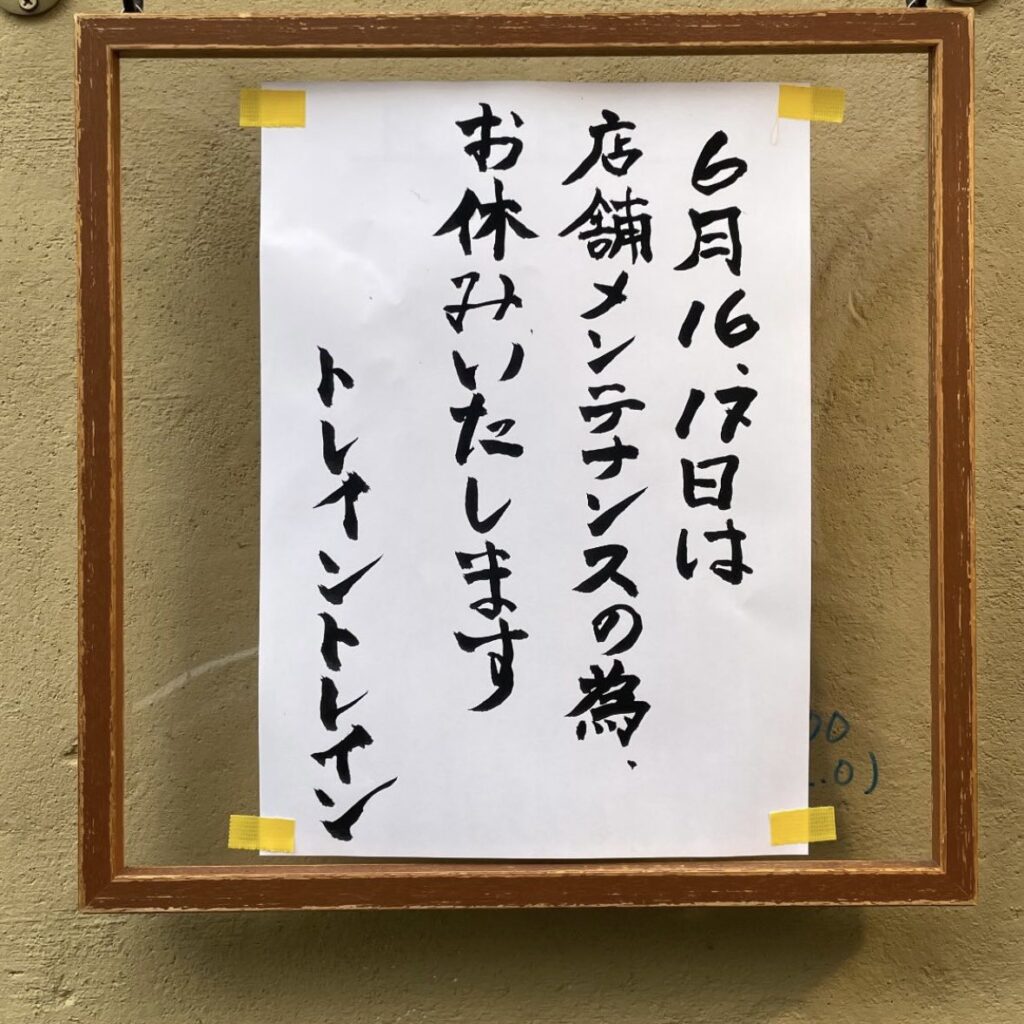 6月16、17日は
店舗メンテナンスの為、
お休みいたします
トレイントレイン
00
..0)